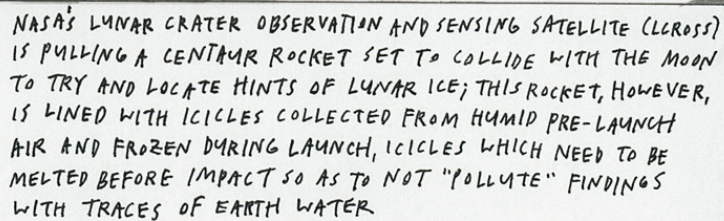 NASA'S LUNAR CRATER OBSERVATION AND SENSING SATELLITE (LCROSS)
IS PULLING A CENTAUR ROCKET SET TO COLLIDE WITH THE MOON
TO TRY AND LOCATE HINTS OF LUNAR ICE; THIS ROCKET, HOWEVER,
IS LINED WITH ICICLES COLLECTED FROM HUMID PRE-LAUNCH
AIR AND FROZEN DURING LAUNCH, ICICLES WHICH NEED TO BE
MELTED BEFORE IMPACT SO AS TO NOT "POLLUTE" FINDINGS
WITH TRACES OF EARTH WATER